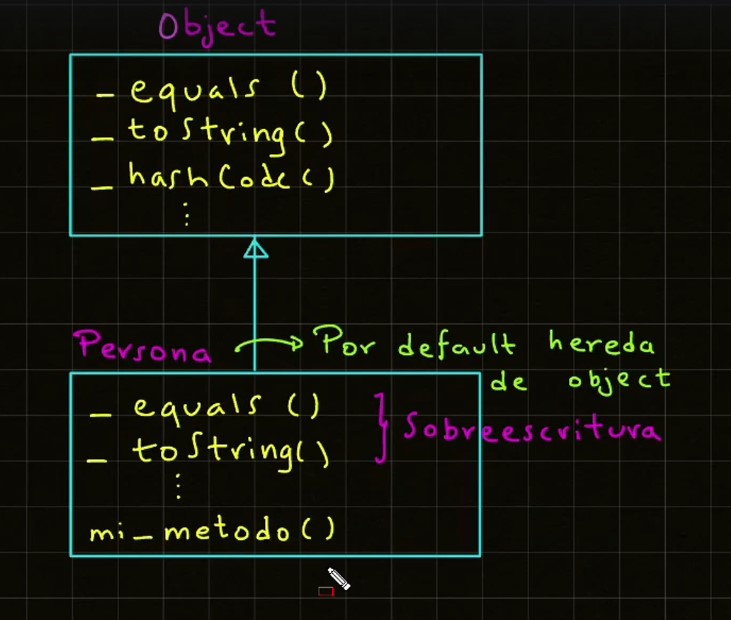 Object
_ equals ()
_ toString()
_ hashCode()
⋮
Persona → Por default hereda
de object
_ equals ()
_ toString()
} Sobreescritura
⋮
mi_metodo()